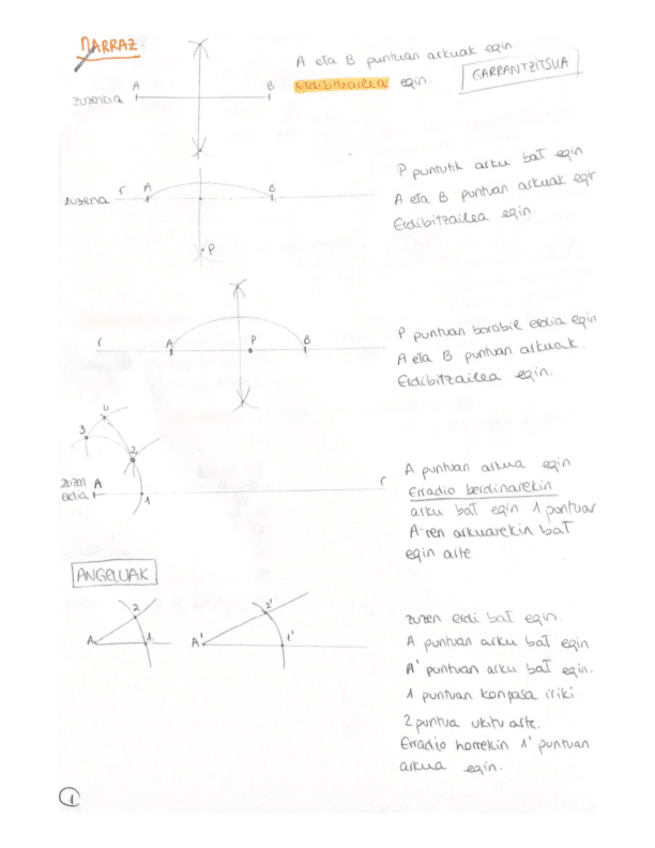 MARRAZ
A eta B puntuan arkuak egin.
Erdibitzailea egin.
GARRANTZITSUA
A
B
zuzenkia
P puntutik arku bat egin
A eta B puntuan arkuak egin
Erdibitzailea egin.
zuzena
r
A
B
P
P puntuan borobil erdia egin
A eta B puntuan arkuak.
Erdibitzailea egin.
r
A
P
B
4
3
2
zuzen
erdia
A
1
r
A puntuan arkua egin
Erradio berdinarekin
arku bat egin 1 puntuan
A-ren arkuarekin bat
egin arte.
ANGELUAK
A
2
1
A'
2'
1'
zuzen erdi bat egin.
A puntuan arku bat egin
A' puntuan arku bat egin.
1 puntuan konpasa iriki
2 puntua ukitu arte.
Erradio horrekin 1' puntuan
arkua egin.
1